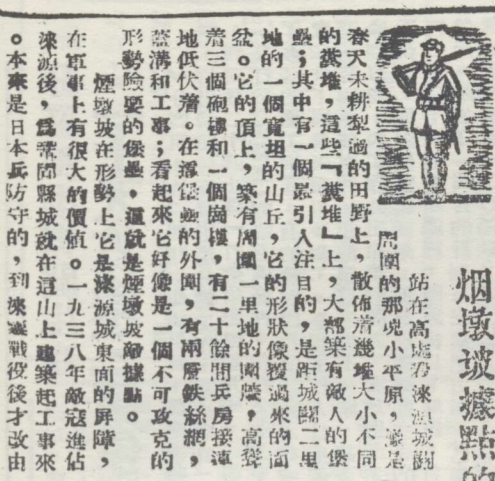 烟墩坡據點的
站在高處看淶源城關
周圍的那塊小平原，像是
春天未耕犁過的田野上，散佈着幾堆大小不同
的糞堆，這些「糞堆」上，大都築有敵人的堡
壘；其中有一個最引人注目的，是距城關二里
地的一個寬坦的山丘，它的形狀像覆過來的面
盆。它的頂上，築有周圍一里地的圍牆，高聳
着三個砲樓和一個崗樓，有二十餘間兵房接連
地低伏着。在這堡壘的外圍，有兩層鉄絲網，
蓋溝和工事；看起來它好像是一個不可攻克的
形勢險要的堡壘，這就是煙墩坡敵據點。
煙墩坡在形勢上它是淶源城東面的屏障，
在軍事上有很大的價値。一九三八年敵寇進佔
淶源後，爲鞏固縣城就在這山上建築起工事來
。本來是日本兵防守的，到淶靈戰役後才改由